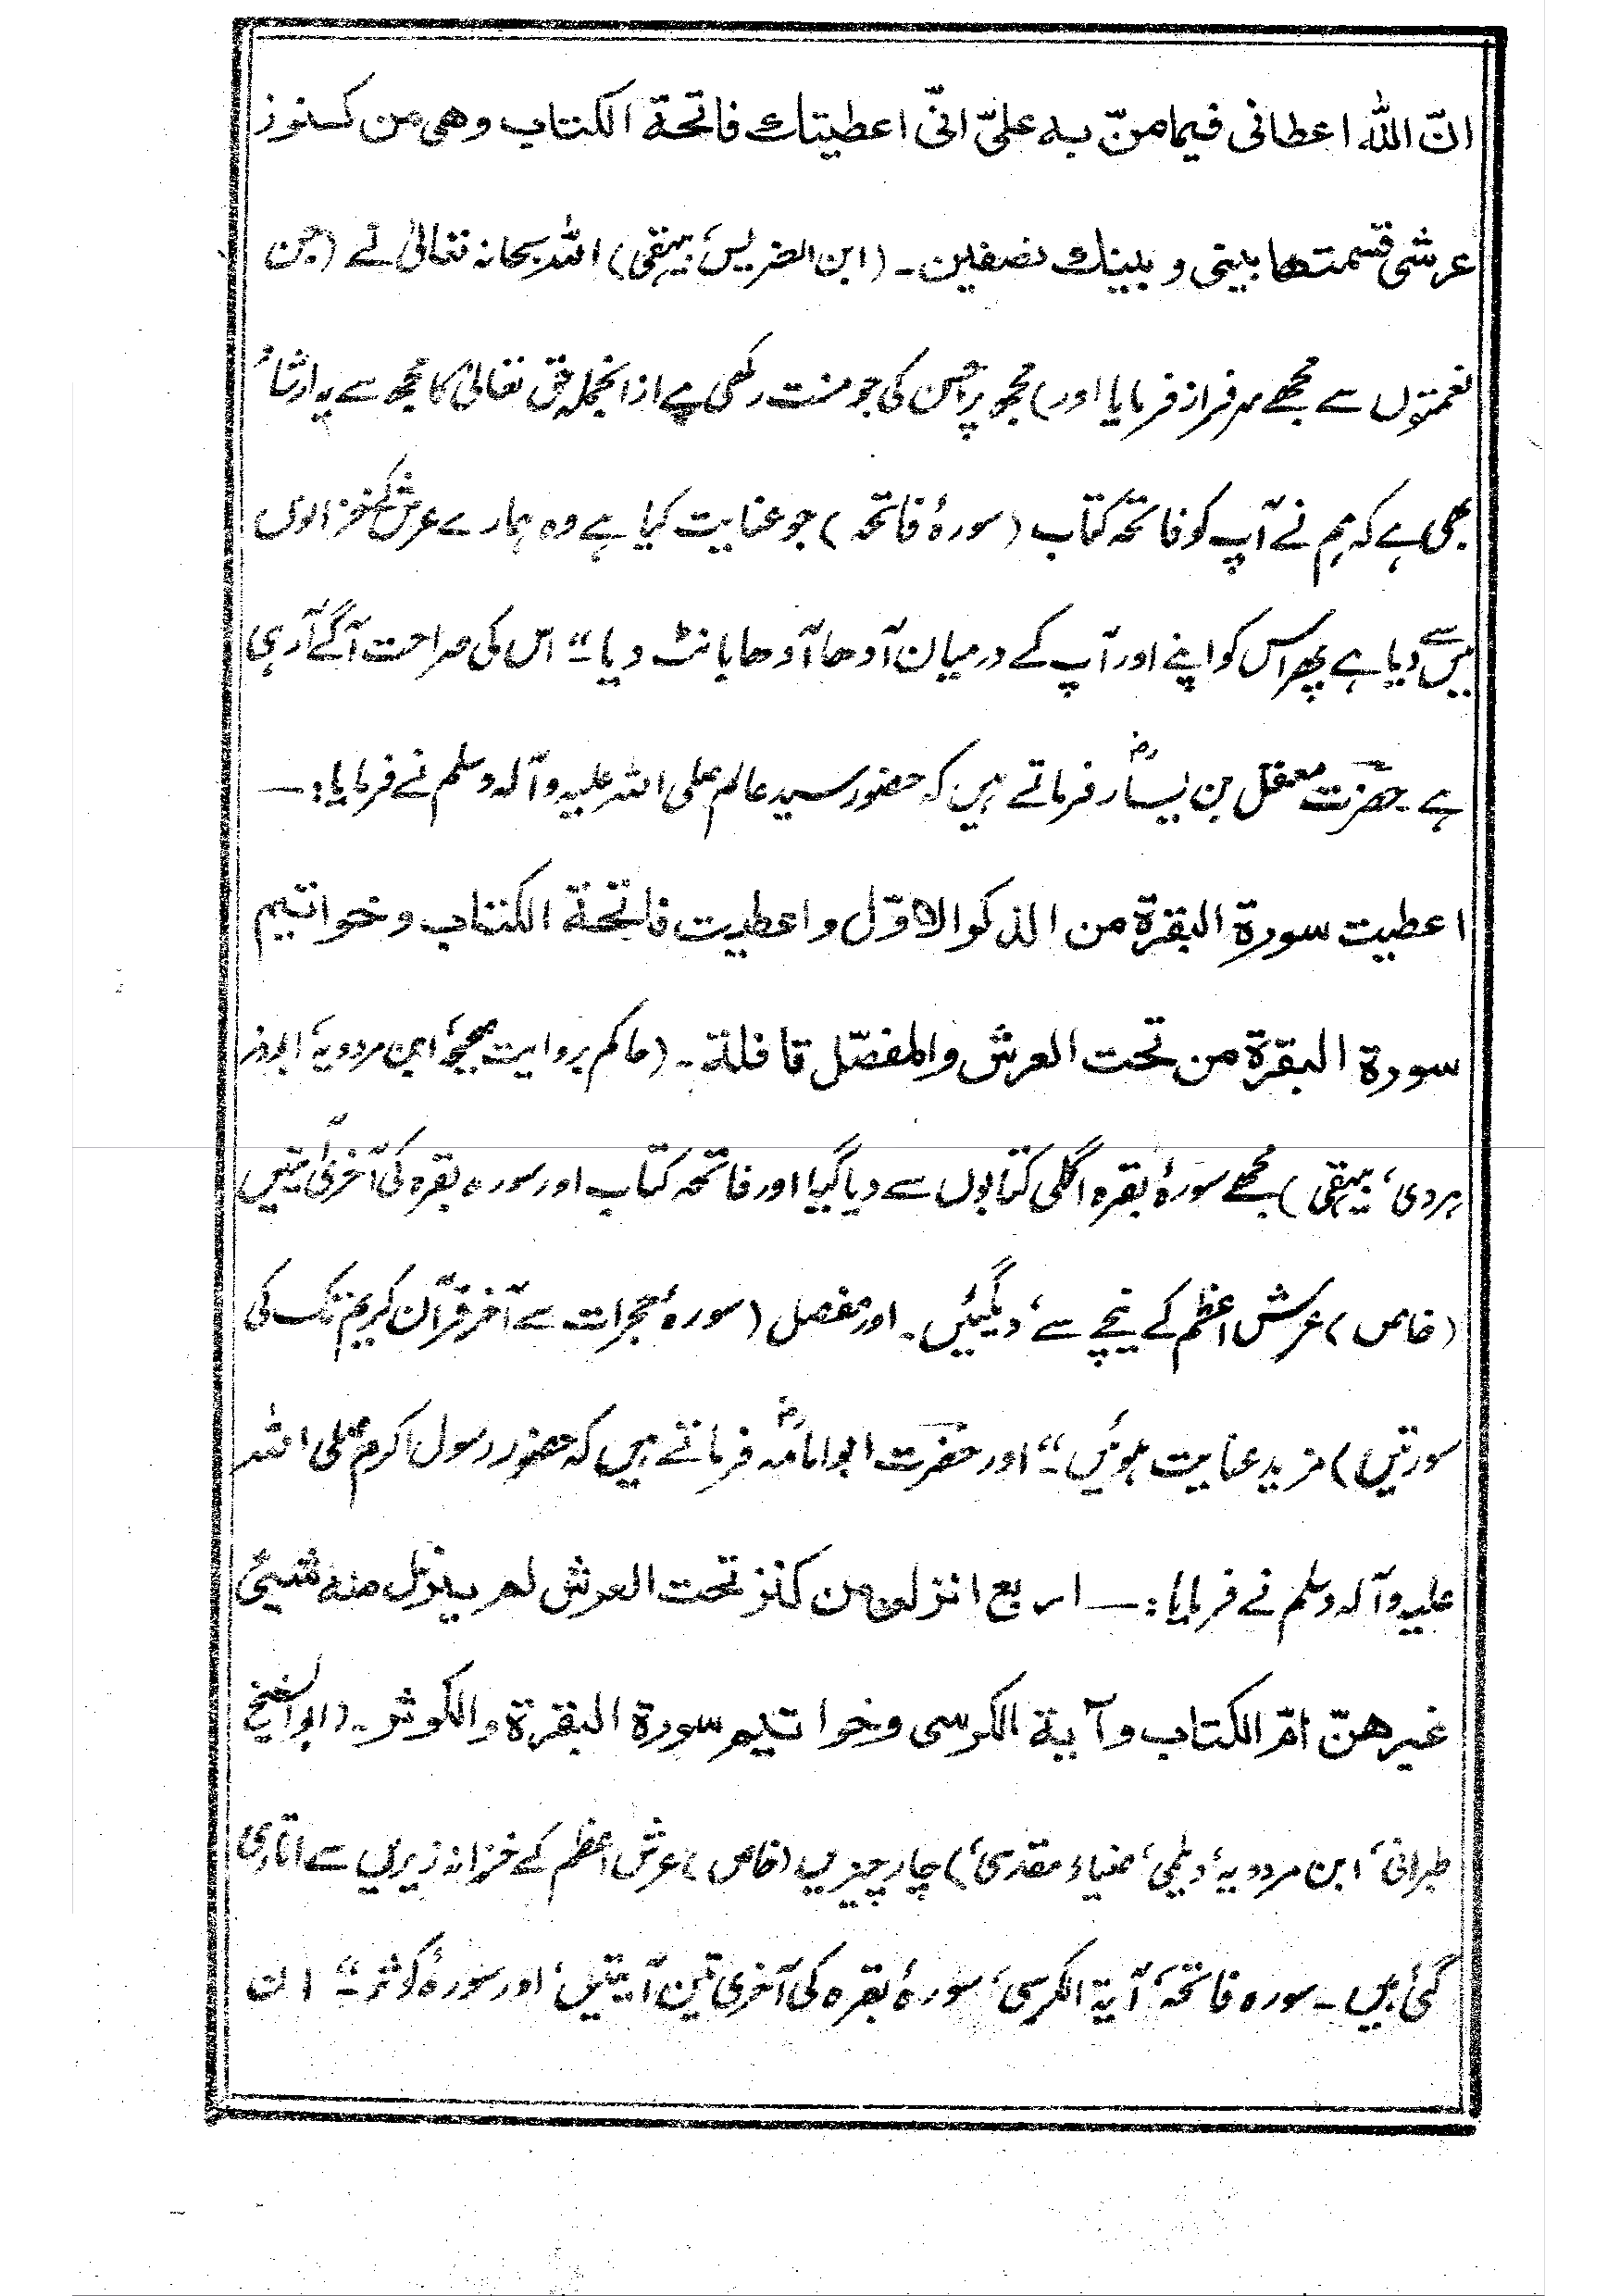 انّ اللہ اعطانی فیما منّ بہ علیّ انّی اعطیتک فاتحة الکتاب وھی من کنوز
عرشی قسمتھا بینی و بینک نصفین۔ (ابن الضریس، بیہقی) اللہ سبحانہ تعالیٰ نے (جن
نعمتوں سے مجھے سرفراز فرمایا اور) مجھ پر جس کی جو منت رکھی ہے ازانجملہ حق تعالیٰ کا مجھ سے یہ ارشاد
بھی ہے کہ ہم نے آپ کو فاتحہ کتاب (سورۂ فاتحہ) جو عنایت کیا ہے وہ ہمارے عرش کے خزانوں
میں سے دیا ہے پھر اس کو اپنے اور آپ کے درمیان آدھا آدھا بانٹ دیا۔“ اس کی صراحت آگے آرہی
ہے۔ حضرت معقل بن یسارؓ فرماتے ہیں کہ حضور سید عالم صلی اللہ علیہ وآلہ وسلم نے فرمایا:—
اعطیت سورة البقرة من الذکر الاوّل واعطیت فاتحة الکتاب وخواتیم
سورة البقرة من تحت العرش والمفصّل نافلة۔ (حاکم بروایت صحیح، ابن مردویہ، ابوذر
ہروی، بیہقی) مجھے سورۂ بقرہ اگلی کتابوں سے دیا گیا اور فاتحہ کتاب اور سورہ بقرہ کی آخری آیتیں
(خاص) عرش اعظم کے نیچے سے، دیگئیں۔ اور مفصل (سورۂ حجرات سے آخر قرآن کریم تک کی
سورتیں) مزید عنایت ہوئیں۔“ اور حضرت ابوامامہؓ فرماتے ہیں کہ حضور رسول اکرم صلی اللہ
علیہ وآلہ وسلم نے فرمایا:— اربع انزلن من کنز تحت العرش لم ینزل منہ شیئ
غیرھنّ امّ الکتاب وآیة الکرسی وخواتیم سورة البقرة والکوثر۔ (ابوالشیخ
طبرانی، ابن مردویہ، دیلمی، ضیاء مقدسی،) چار چیزیں (خاص) عرش اعظم کے خزانہ زیریں سے اتاری
گئی ہیں۔ سورہ فاتحہ، آیة الکرسی، سورۂ بقرہ کی آخری تین آیتیں، اور سورۂ کوثر۔“ ان